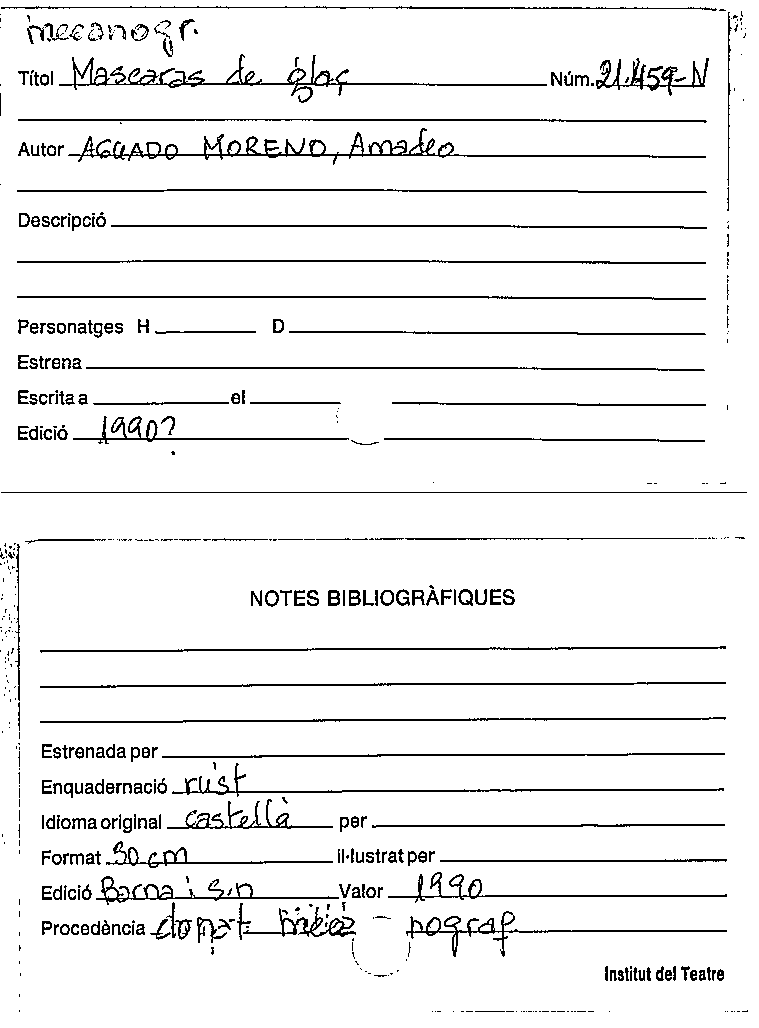 mecanogr.
Títol Mascaras de glaç Núm. 21.459-N
Autor AGUADO MORENO, Amadeo
Descripció
Personatges H D
Estrena
Escrita a el
Edició 1990?
NOTES BIBLIOGRÀFIQUES
Estrenada per
Enquadernació rúst
Idioma original castellà per
Format 30 cm il·lustrat per
Edició Barna i s.n Valor 1990
Procedència donat
Institut del Teatre